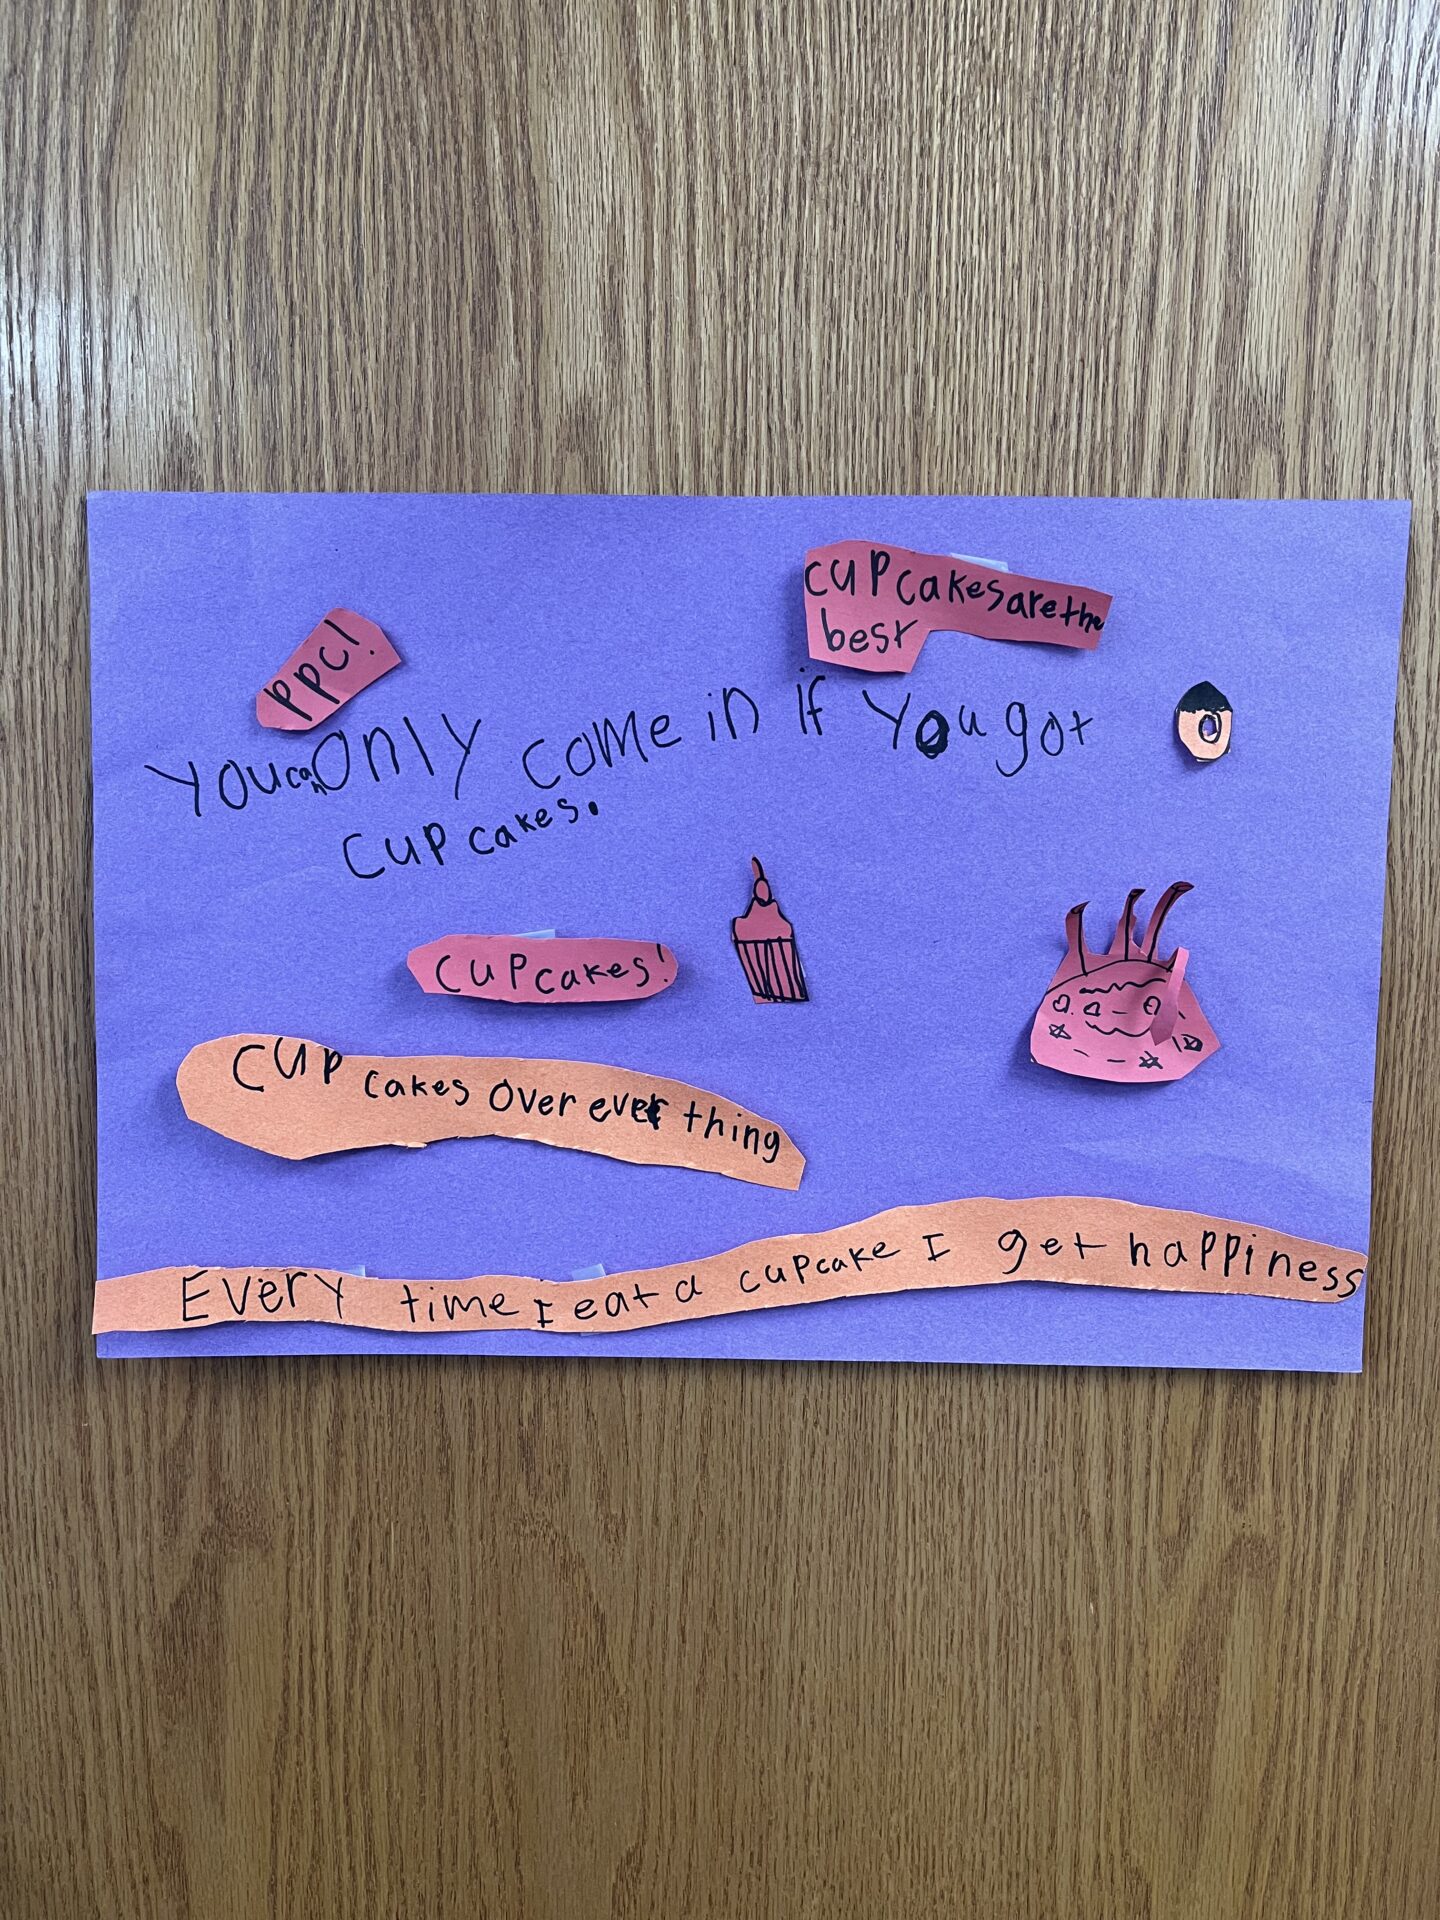 PPC!
cupcakes are the
best
You can Only come in if You got
cupcakes.
cupcakes!
cupcakes over ever thing
Every time I eat a cupcake I get happiness